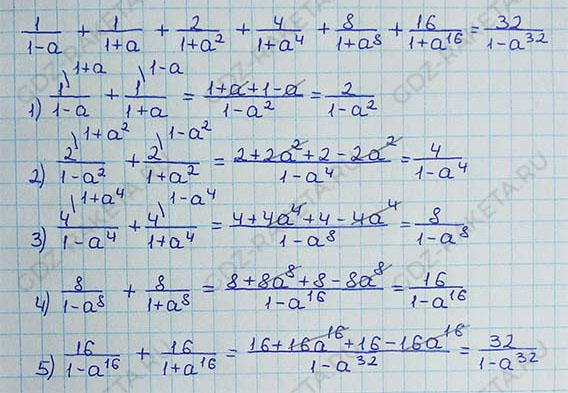 1/(1-a) + 1/(1+a) + 2/(1+a²) + 4/(1+a⁴) + 8/(1+a⁸) + 16/(1+a¹⁶) = 32/(1-a³²)
1) 1\1+a/(1-a) + 1\1-a/(1+a) = (1+a+1-a)/(1-a²) = 2/(1-a²)
2) 2\1+a²/(1-a²) + 2\1-a²/(1+a²) = (2+2a²+2-2a²)/(1-a⁴) = 4/(1-a⁴)
3) 4\1+a⁴/(1-a⁴) + 4\1-a⁴/(1+a⁴) = (4+4a⁴+4-4a⁴)/(1-a⁸) = 8/(1-a⁸)
4) 8/(1-a⁸) + 8/(1+a⁸) = (8+8a⁸+8-8a⁸)/(1-a¹⁶) = 16/(1-a¹⁶)
5) 16/(1-a¹⁶) + 16/(1+a¹⁶) = (16+16a¹⁶+16-16a¹⁶)/(1-a³²) = 32/(1-a³²)
GDZ-RAKETA.RU